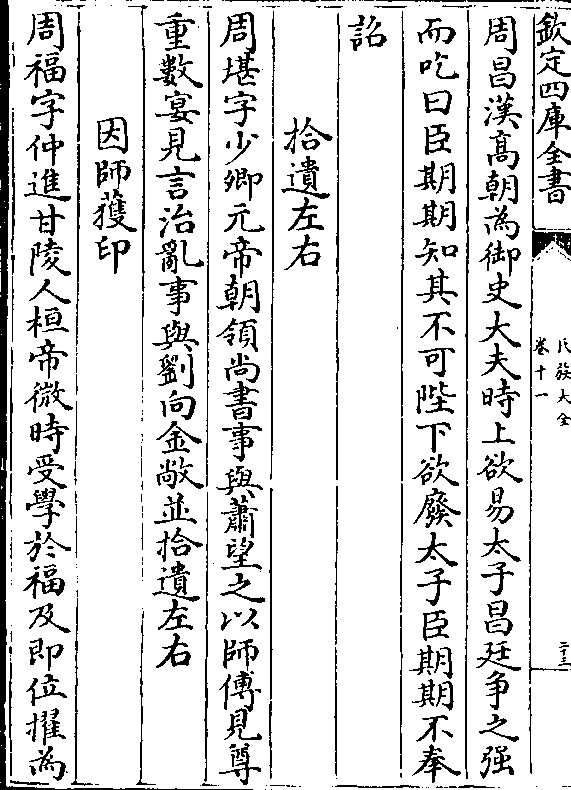 欽定四庫全書
氏族大全
卷十一
二十三
周昌漢髙朝為御史大夫時上欲易太子昌廷争之强
而吃曰臣期期知其不可陛下欲廢太子臣期期不奉
詔
拾遺左右
周堪字少卿元帝朝領尚書事與蕭望之以師傅見尊
重數宴見言治亂事與劉向金敞並拾遺左右
因師獲印
周福字仲進甘陵人桓帝微時受學於福及即位擢為